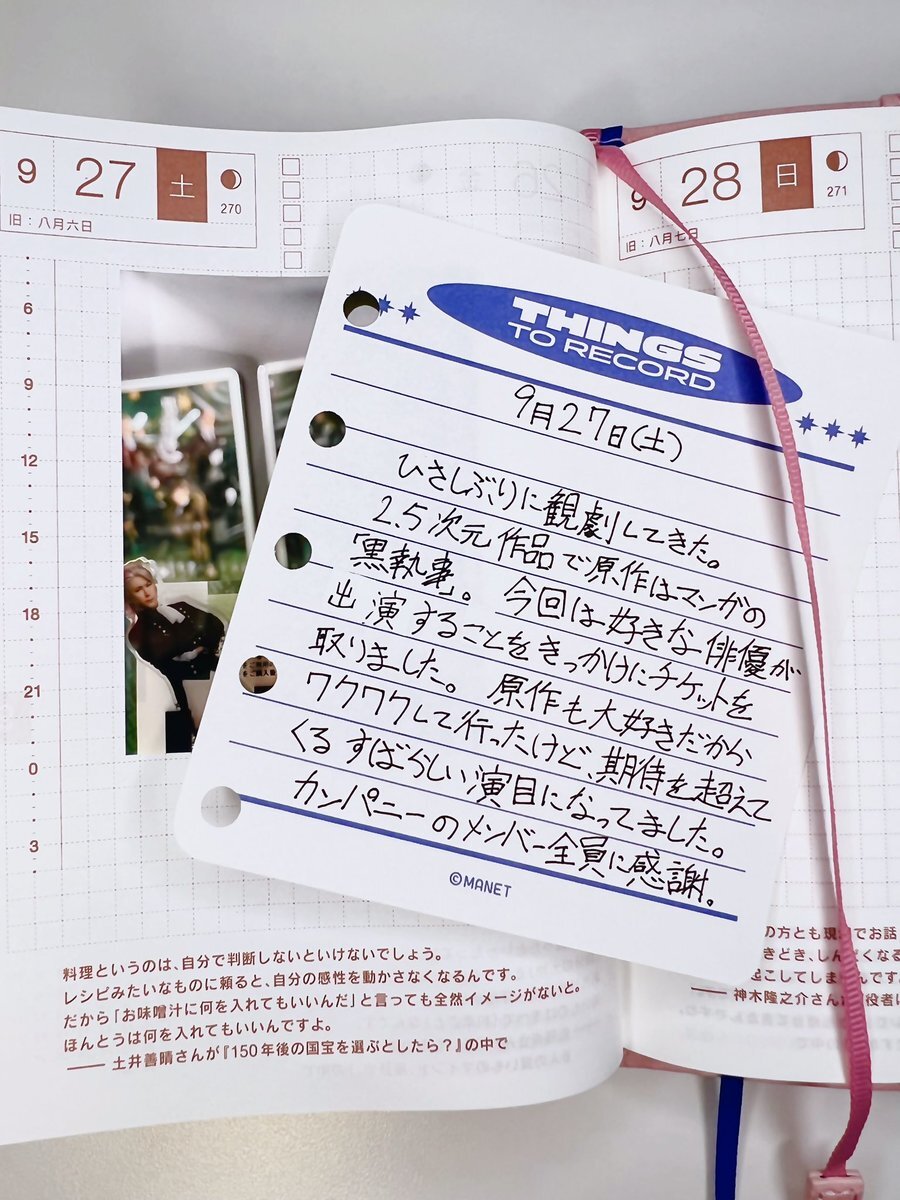 9 27 土
270
旧：八月六日
9 28 日
271
旧：八月七日
6
9
12
15
18
21
0
3
THINGS
TO RECORD
9月27日(土)
ひさしぶりに観劇してきた。
2.5次元作品で原作はマンガの
黒執事。今回は好きな俳優が
出演することをきっかけにチケットを
取りました。原作も大好きだから
ワクワクして行ったけど、期待を超えて
くるすばらしい演目になってました。
カンパニーのメンバー全員に感謝。
©MANET
料理というのは、自分で判断しないといけないでしょう。
レシピみたいなものに頼ると、自分の感性を動かさなくなるんです。
だから「お味噌汁に何を入れてもいいんだ」と言っても全然イメージがないと。
ほんとうは何を入れてもいいんですよ。
―― 土井善晴さんが『150年後の国宝を選ぶとしたら？』の中で
の方とも現 でお話
きどき、しん くなる
起こしてしま んです
―― 神木隆之介さん 役者